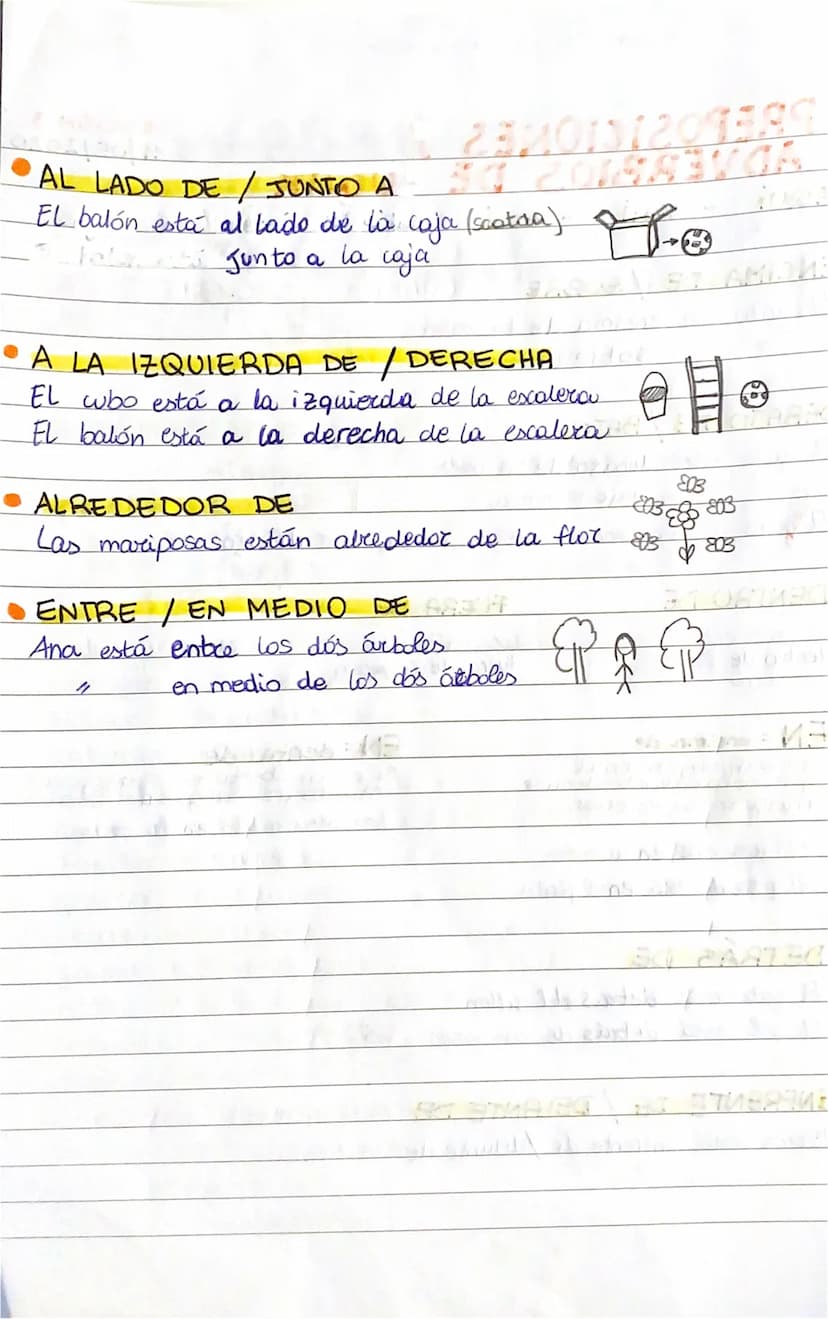 AL LADO DE / JUNTO A
El balón está al lado de la caja (scatoa)
junto a la caja
A LA IZQUIERDA DE / DERECHA
El cubo está a la izquierda de la escalera
El balón está a la derecha de la escalera
ALREDEDOR DE
Las mariposas están alrededor de la flor
ENTRE / EN MEDIO DE
Ana está entre los dós árboles
" en medio de los dós árboles